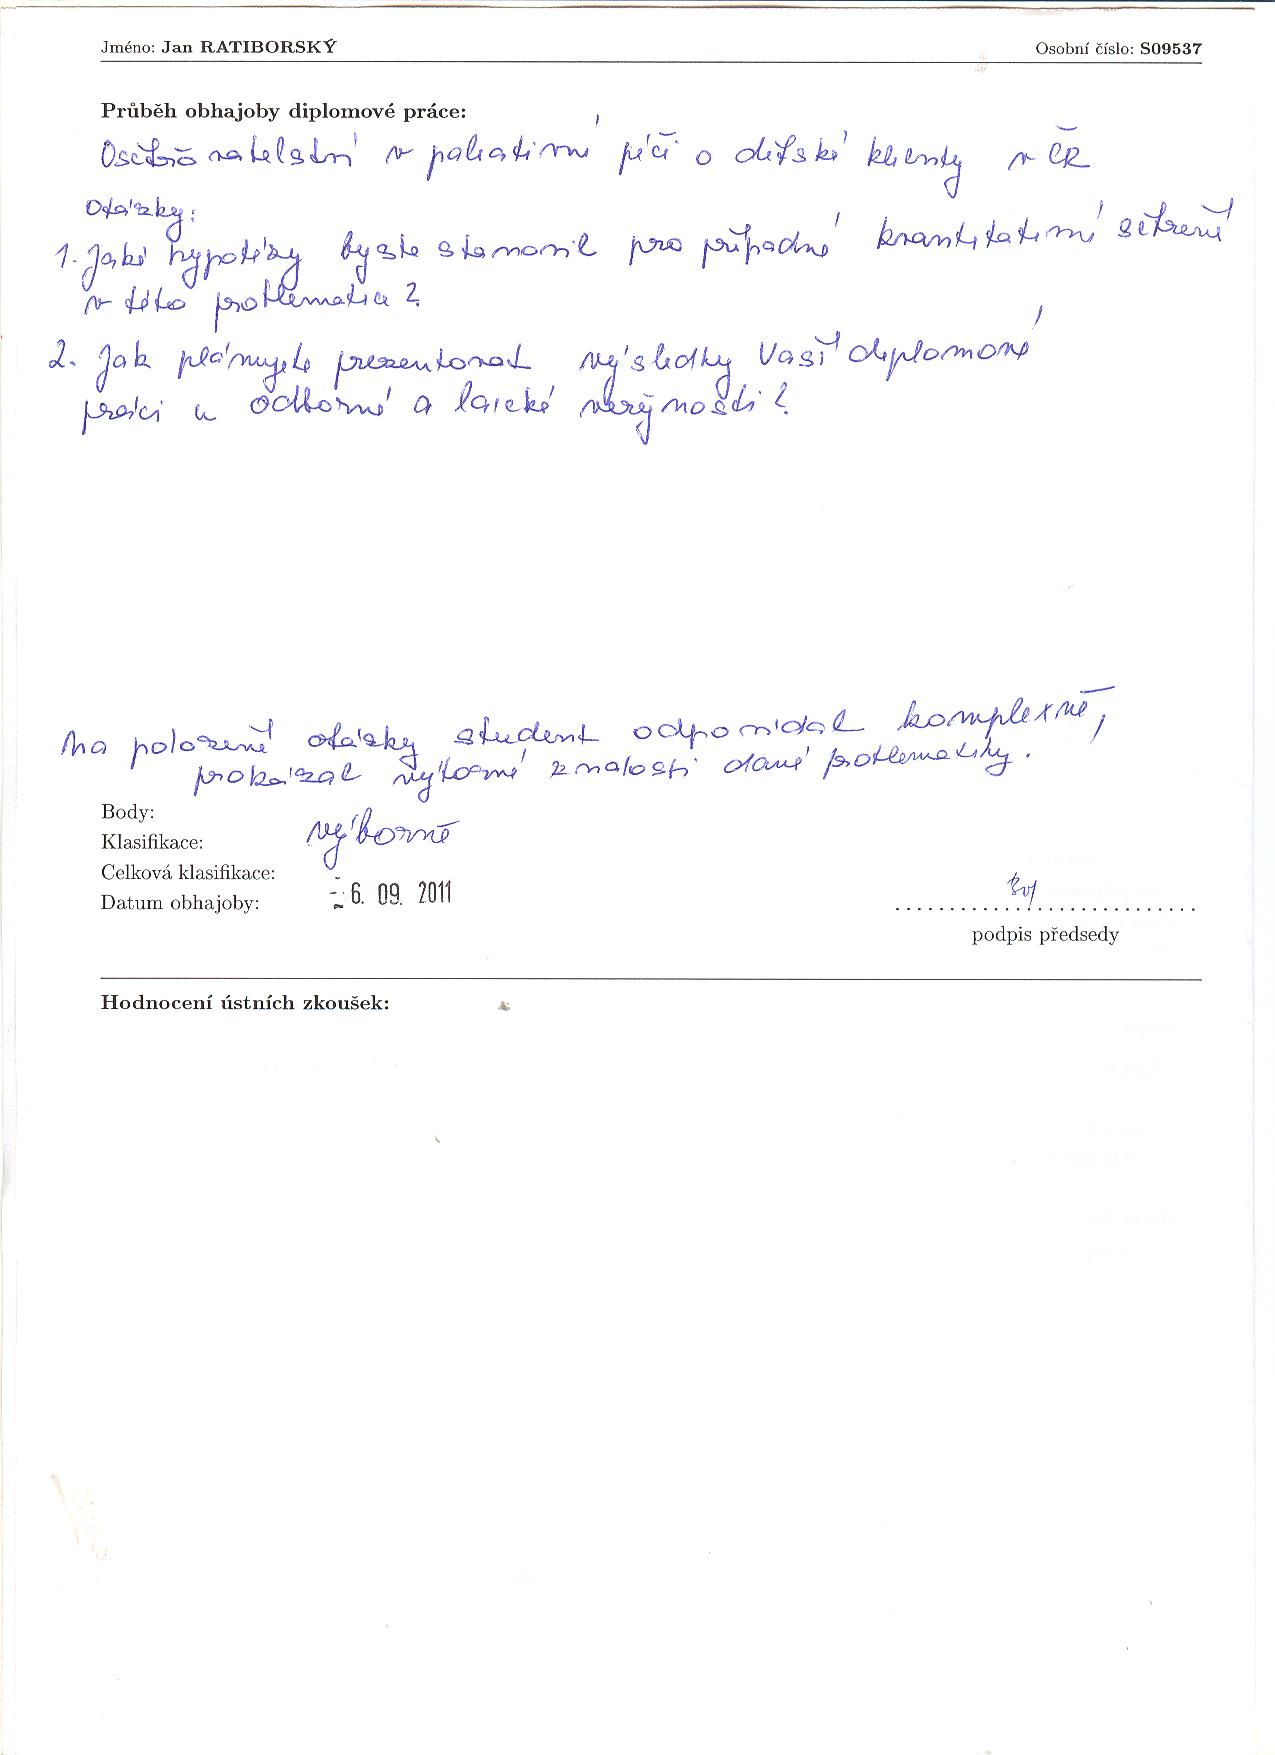 Jméno: Jan RATIBORSKÝ Osobní číslo: S09537
Průběh obhajoby diplomové práce:
Ošetřovatelství v paliativní péči o dětské klienty v ČR
Otázky:
1. Jaké hypotézy byste stanovil pro případné kvantitativní šetření
v této problematice?
2. Jak plánujete prezentovat výsledky Vaší diplomové
práci u odborné a laické veřejnosti?
Na položené otázky student odpovídal komplexně,
prokázal výborné znalosti dané problematiky.
Body:
Klasifikace: výborně
Celková klasifikace:
Datum obhajoby: - 6. 09. 2011
podpis předsedy
Hodnocení ústních zkoušek: